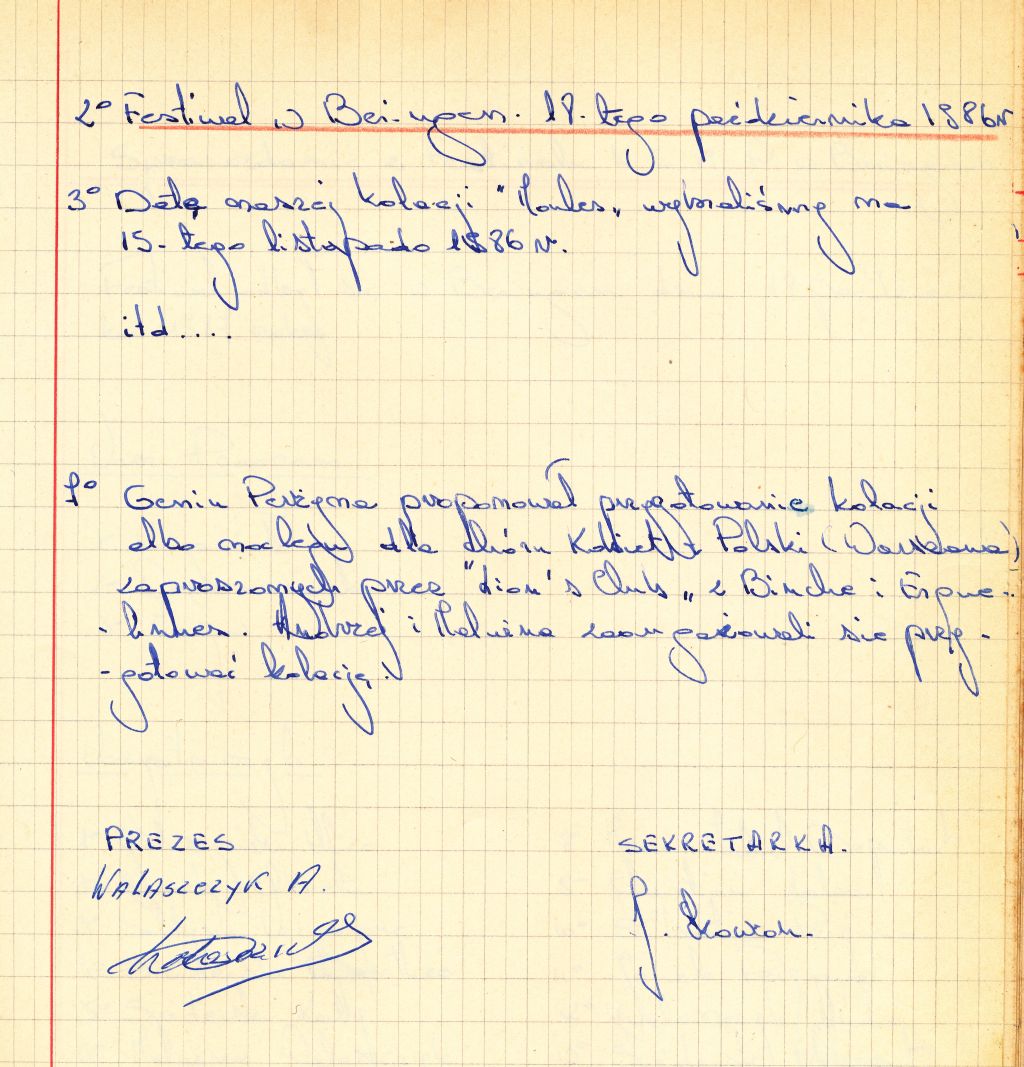 2° Festiwal w Beringen. 18. tego października 1986 r
3° Datę naszej kolacji "Moules" wybraliśmy na
15-tego listopada 1986 r.
itd....
Geniu proponował przygotowanie kolacji
albo noclegu dla chóru Kobiet z Polski (Warszawa)
zaproszonych przez "Lion's Club" z Binche i Erque-
-linnes. Andrzej i Halwina zaangażowali się przy-
-gotować kolację.
PREZES
SEKRETARKA.
WALASZCZYK A.